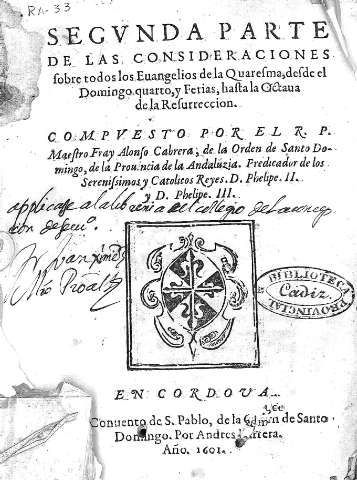 RA-33
SEGVNDA PARTE
DE LAS CONSIDERACIONES
sobre todos los Euangelios de la Quaresma, desde el
Domingo quarto, y Ferias, hasta la Octaua
de la Resurreccion.
COMPVESTO POR EL R. P.
Maestro Fray Alonso Cabrera, de la Orden de Santo Do-
mingo, de la Prouncia de la Andaluzia. Predicador de los
Serenissimos y Catolicos Reyes. D. Phelipe. II.
y D. Phelipe. III.
applicase a la libreria del collegio de la concep
cion de
Juan
BIBLIOTECA
Cadiz
PROVINCIAL
EN CORDOVA.
Conuento de S. Pablo, de la Orden de Santo
Domingo. Por Andres Barrera.
Año. 1601.